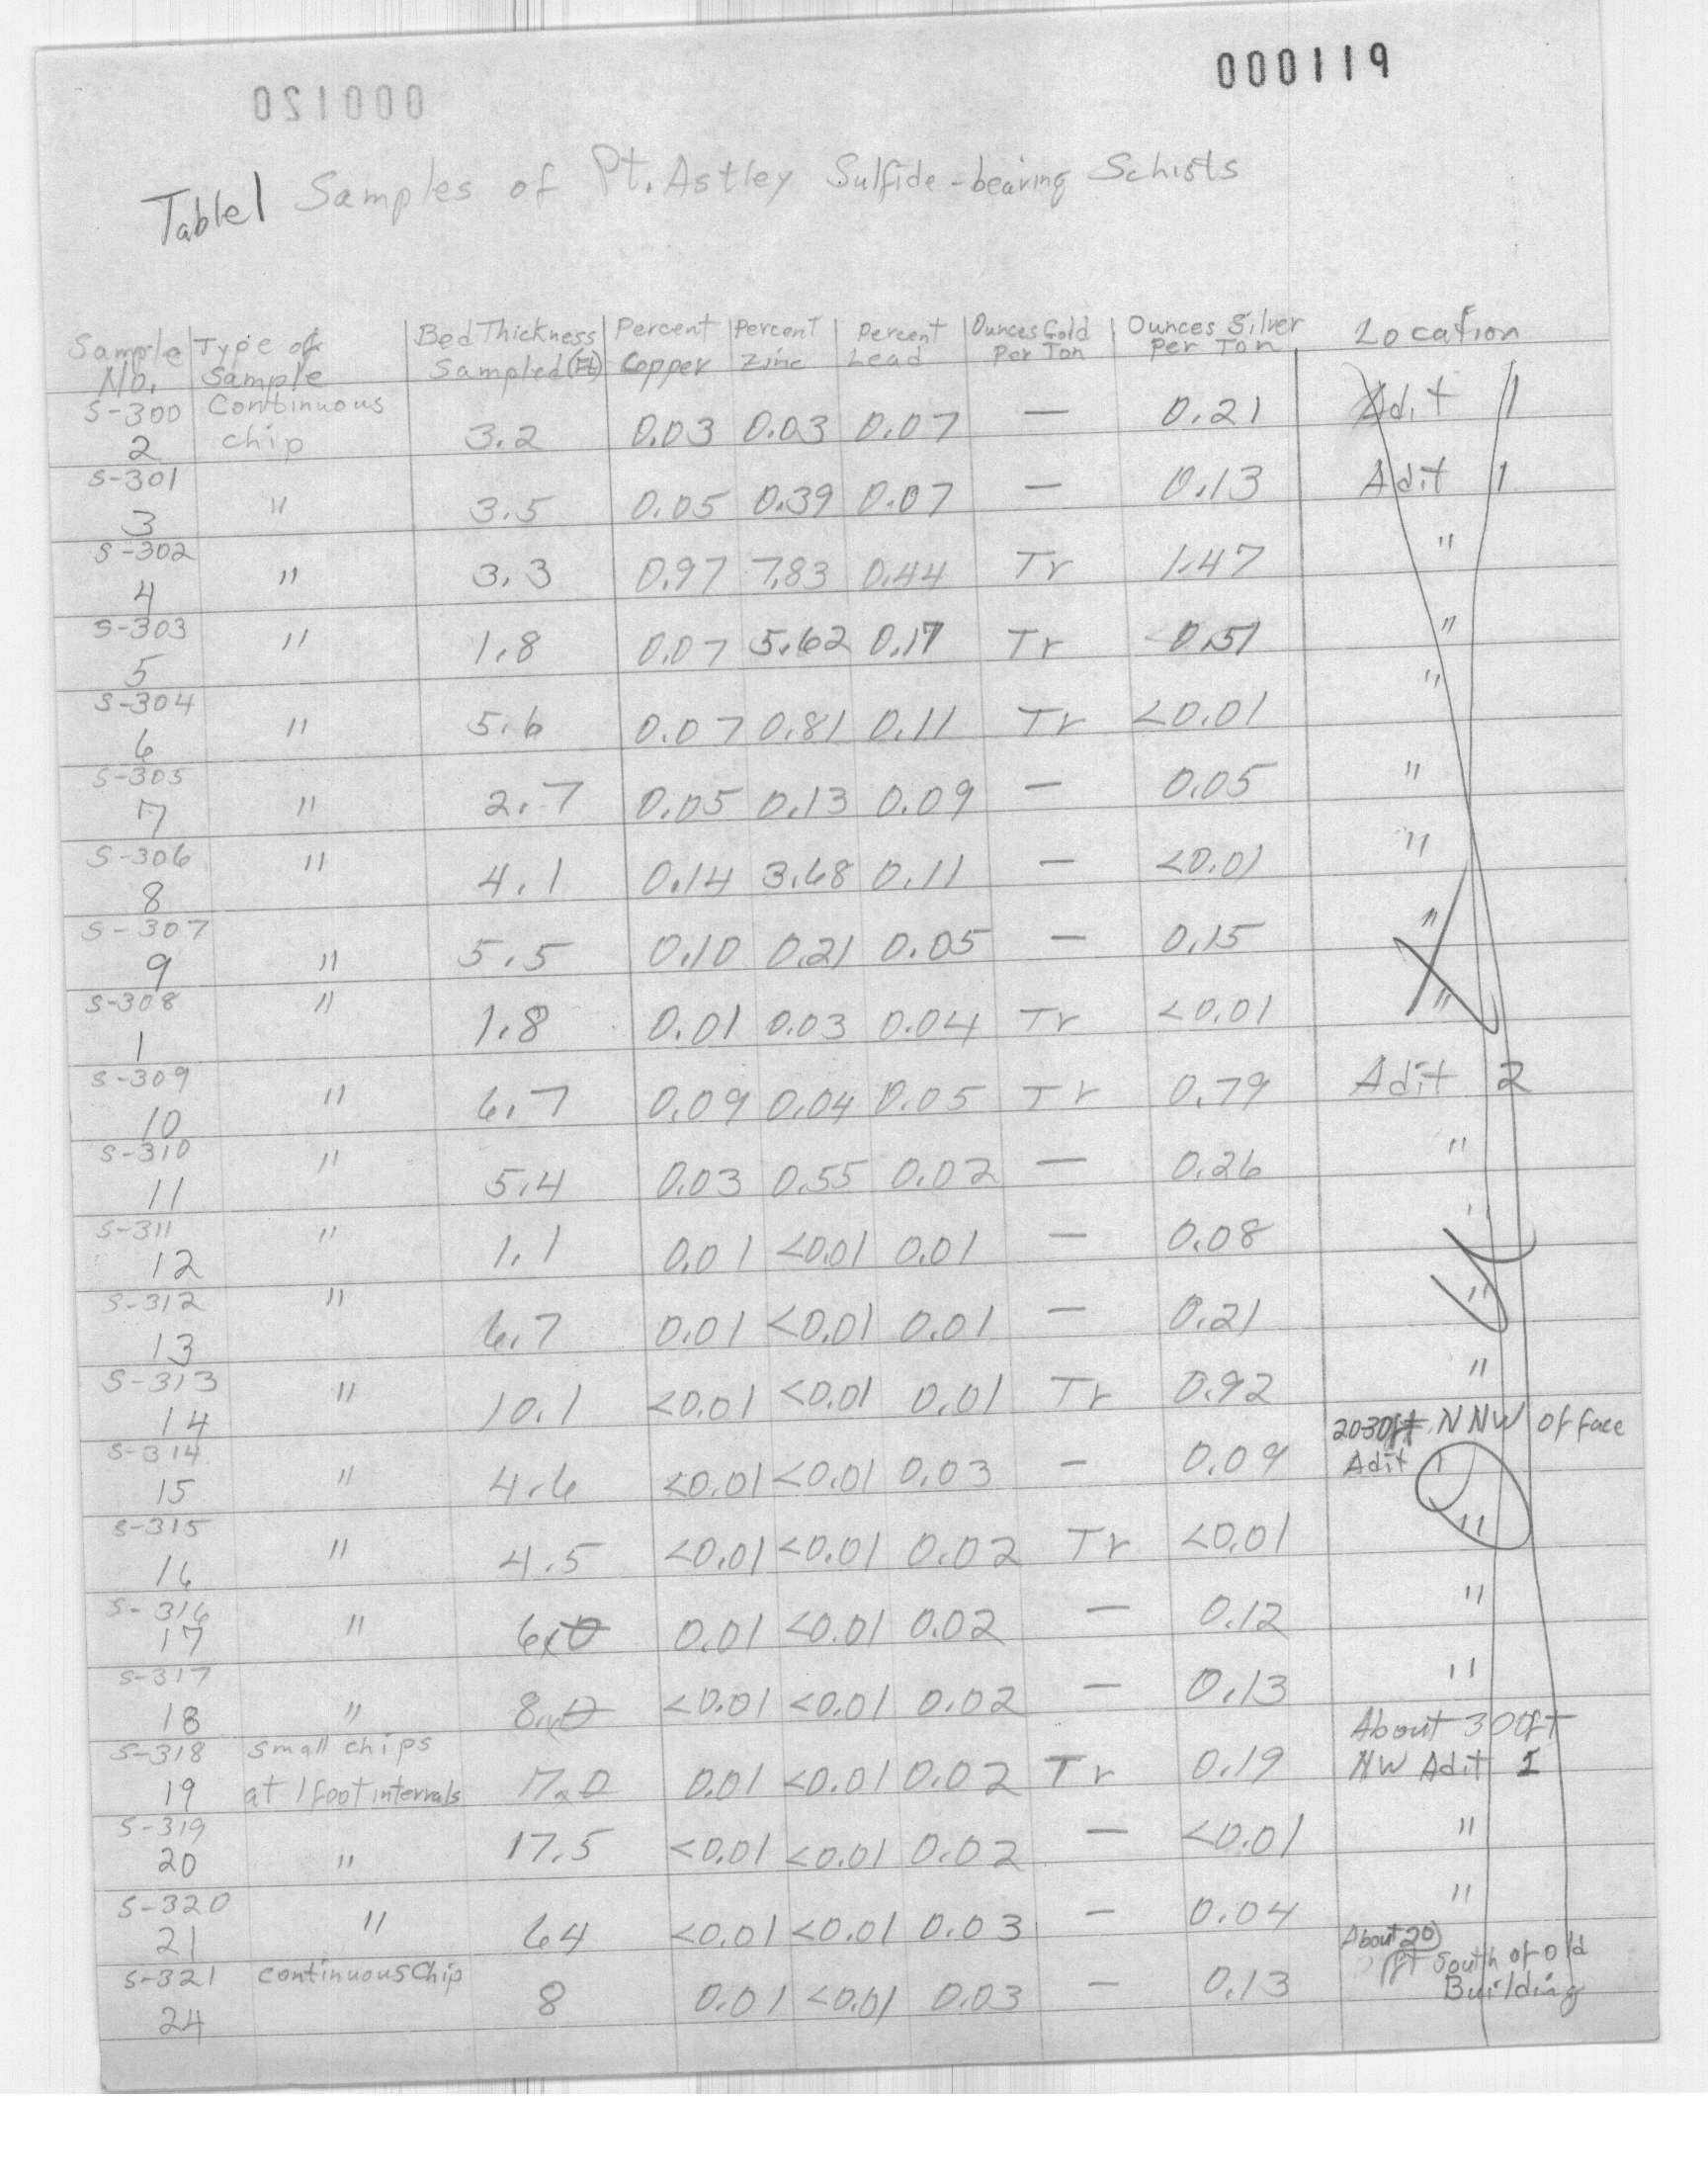 000119
000120
Table 1 Samples of Pt. Astley Sulfide-bearing Schists
Sample No. Type of Sample Bed Thickness Sampled (Ft) Percent Copper Percent Zinc Percent Lead Ounces Gold Per Ton Ounces Silver Per Ton Location
S-300 2 Continuous chip 3.2 0.03 0.03 0.07 — 0.21 Adit 1
S-301 3 " 3.5 0.05 0.39 0.07 — 0.13 Adit 1
S-302 4 " 3.3 0.97 7.83 0.44 Tr 1.47 "
S-303 5 " 1.8 0.07 5.62 0.17 Tr 0.51 "
S-304 6 " 5.6 0.07 0.81 0.11 Tr <0.01 "
S-305 7 " 2.7 0.05 0.13 0.09 — 0.05 "
S-306 8 " 4.1 0.14 3.68 0.11 — <0.01 "
S-307 9 " 5.5 0.10 0.21 0.05 — 0.15 "
S-308 1 " 1.8 0.01 0.03 0.04 Tr <0.01 "
S-309 10 " 6.7 0.09 0.04 0.05 Tr 0.79 Adit 2
S-310 11 " 5.4 0.03 0.55 0.02 — 0.26 "
S-311 12 " 1.1 0.01 <0.01 0.01 — 0.08 "
S-312 13 " 6.7 0.01 <0.01 0.01 — 0.21 "
S-313 14 " 10.1 <0.01 <0.01 0.01 Tr 0.92 "
S-314 15 " 4.6 <0.01 <0.01 0.03 — 0.09 20-30ft. NNW of face Adit 1
S-315 16 " 4.5 <0.01 <0.01 0.02 Tr <0.01 "
S-316 17 " 6.0 0.01 <0.01 0.02 — 0.12 "
S-317 18 " 8.0 <0.01 <0.01 0.02 — 0.13 "
S-318 19 Small chips at 1 foot intervals 17.0 0.01 <0.01 0.02 Tr 0.19 About 300ft NW Adit 1
S-319 20 " 17.5 <0.01 <0.01 0.02 — <0.01 "
S-320 21 " 64 <0.01 <0.01 0.03 — 0.04 "
S-321 24 Continuous Chip 8 0.01 <0.01 0.03 — 0.13 About 20 ft South of old Building